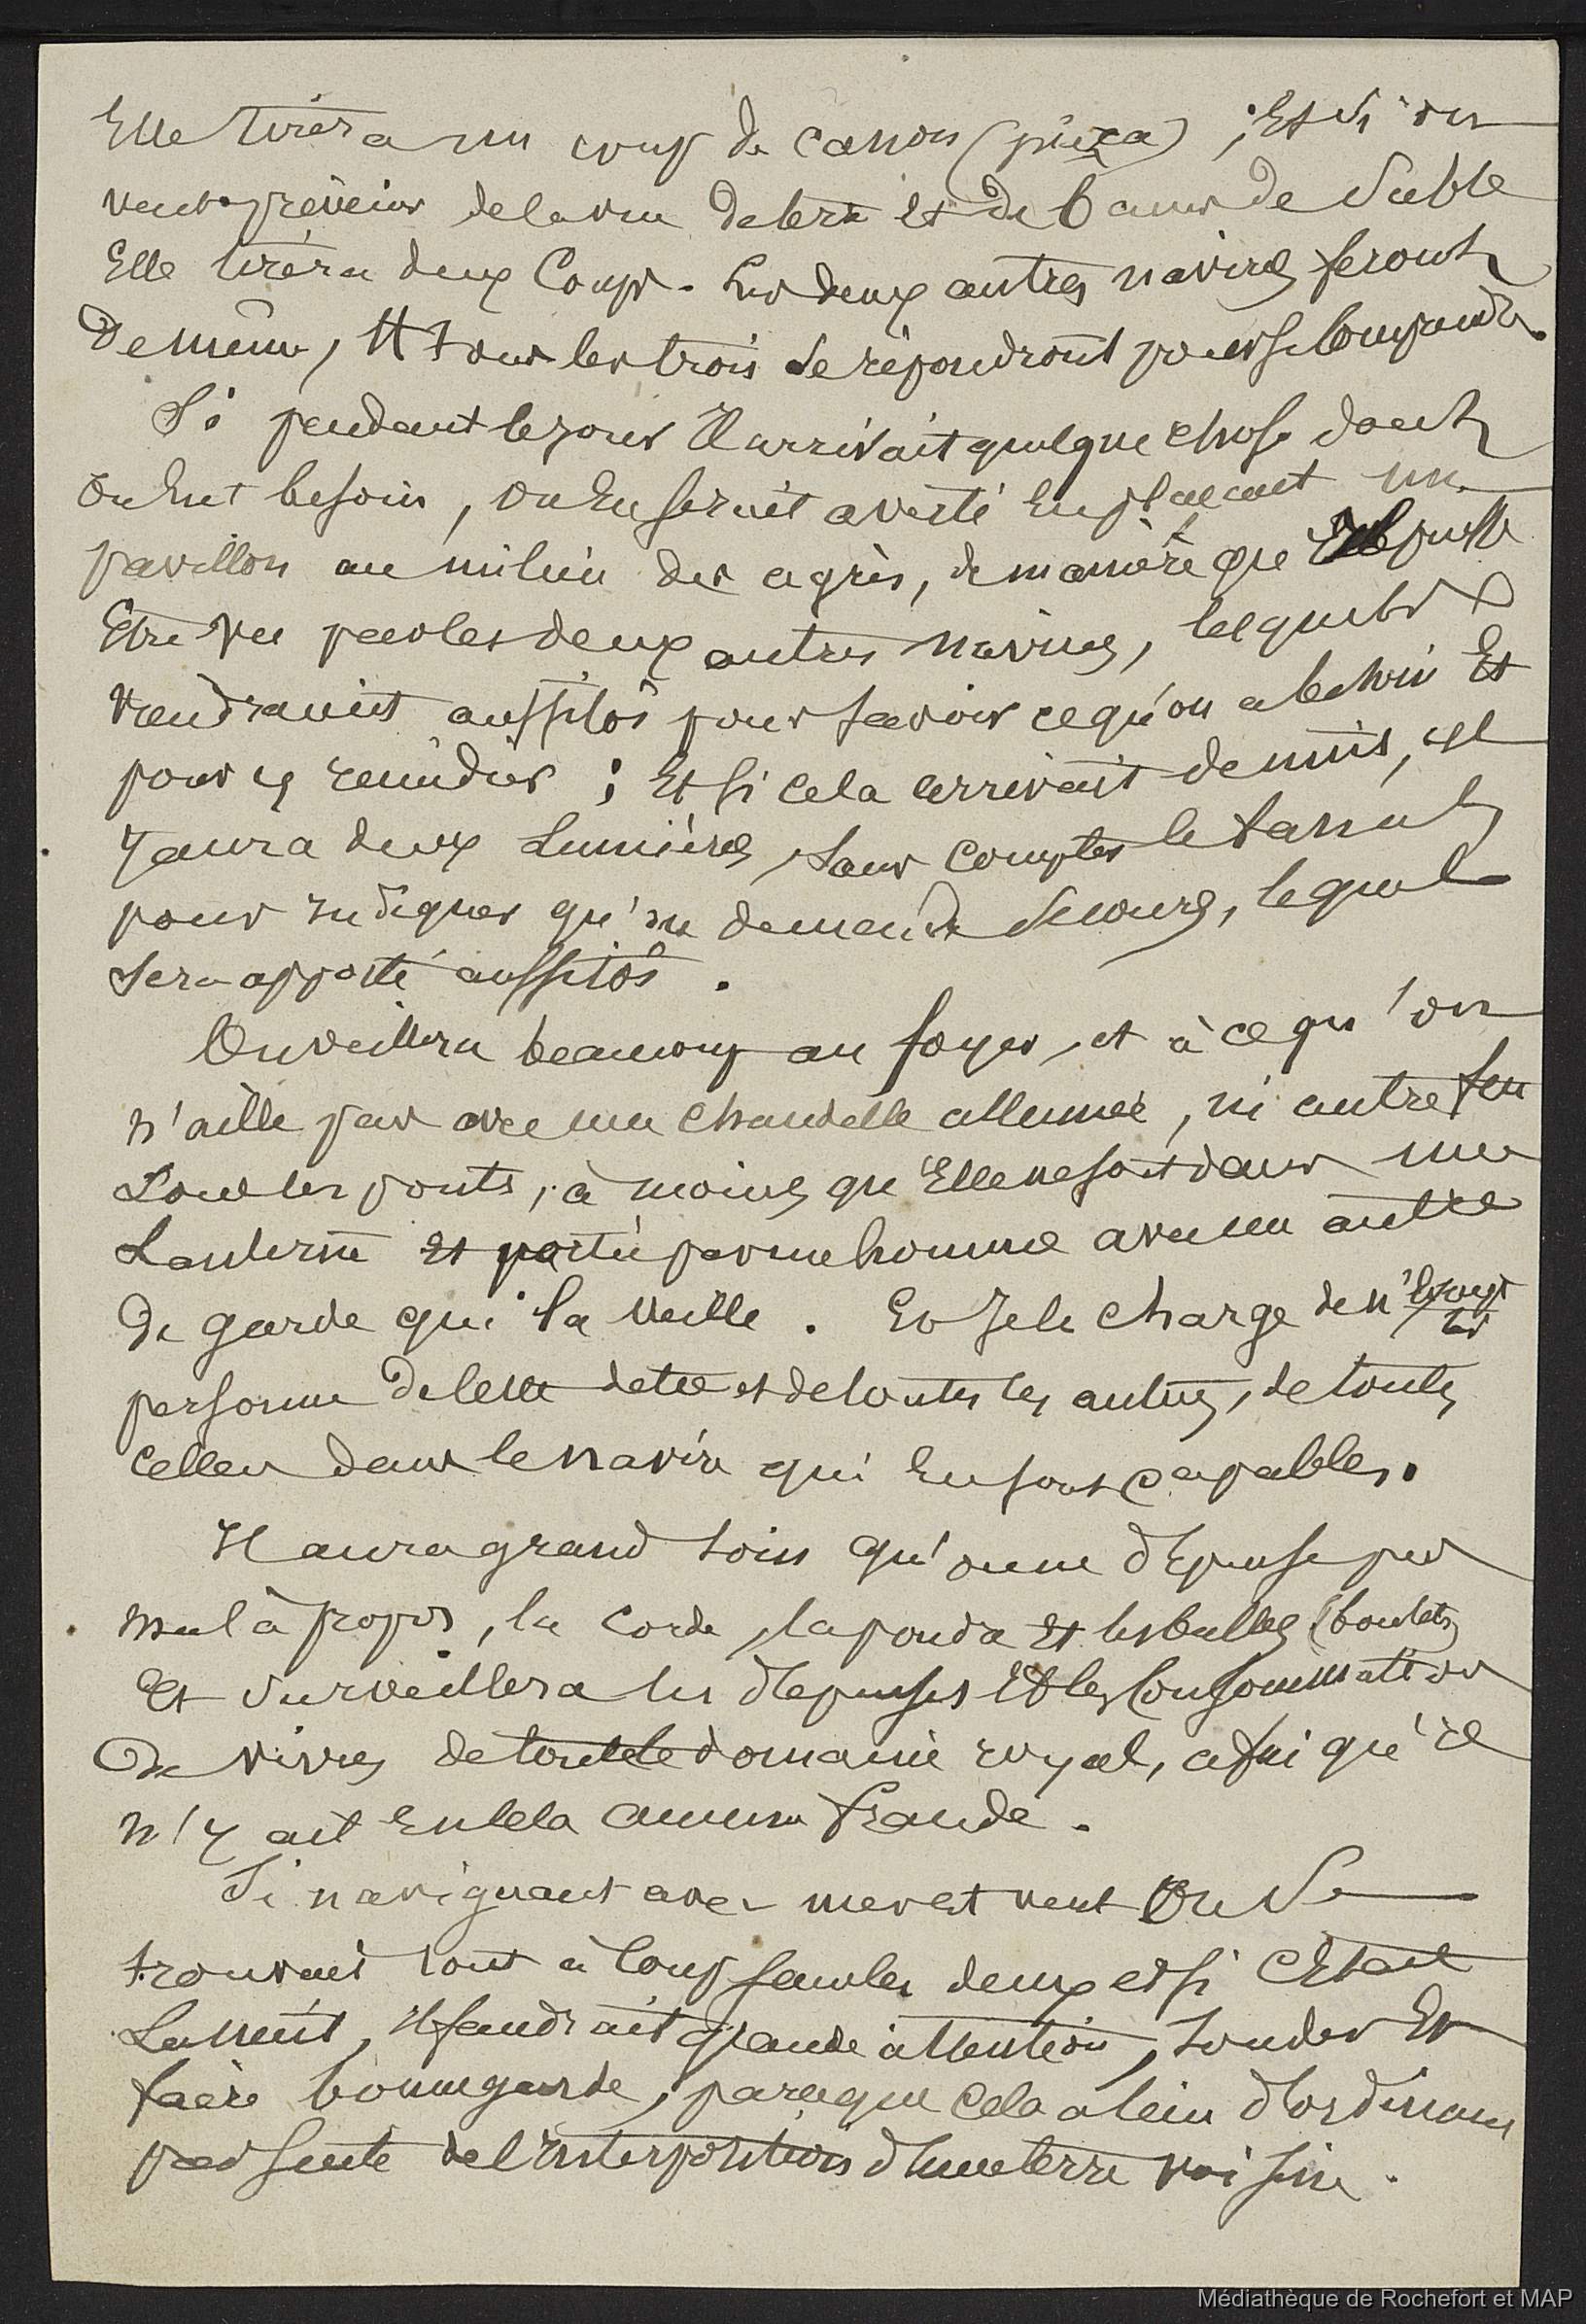 Elle tirera un coup de canon (pieza) ; Et si on
veut prévenir de la vue de terre et de bancs de sable
Elle tirera deux Coups. Les deux autres navires feront
De même, Et tous les trois se répondront pour se comprendre.
Si pendant le jour Il arrivait quelque chose dont
on eut besoin, on En serait averti En plaçant un
pavillon au milieu des agrès, de manière que puisse
Etre vu par les deux autres navires, lesquels
viendraient aussitôt pour savoir ce qu'on a besoin Et
pour y remédier ; Et si cela arrivait de nuit, il
y aura deux Lumières, sans compter le fanal
pour indiquer qu'on demande Secours, lequel
sera apporté aussitôt.
On veillera beaucoup au foyer, et à ce qu'on
n'aille pas avec une chandelle allumée, ni autre feu
Sous les ponts, à moins qu'Elle ne soit dans une
Lanterne et portée par un homme avec un autre
De garde qui la veille. Et Je le charge de n'Exempter
personne de cette et de toutes les autres, de toutes
celles dans le navire qui En sont capables.
Il aura grand soin qu'on ne dépense pas
mal à propos, la corde, la poudre Et les balles (boulets)
Et surveillera les dépenses Et les Consommations
De vivres de tout le domaine royal, afin qu'il
n'y ait En cela aucune fraude.
Si navigant avec mer et vent On Se
trouvait tout à Coup sans les deux et si C'Etait
La nuit, Il faudrait grande attention, Sonder Et
faire bonne garde, parceque Cela a lieu d'ordinaire
par suite de l'interposition d'une terre voisine.
Médiathèque de Rochefort et MAP